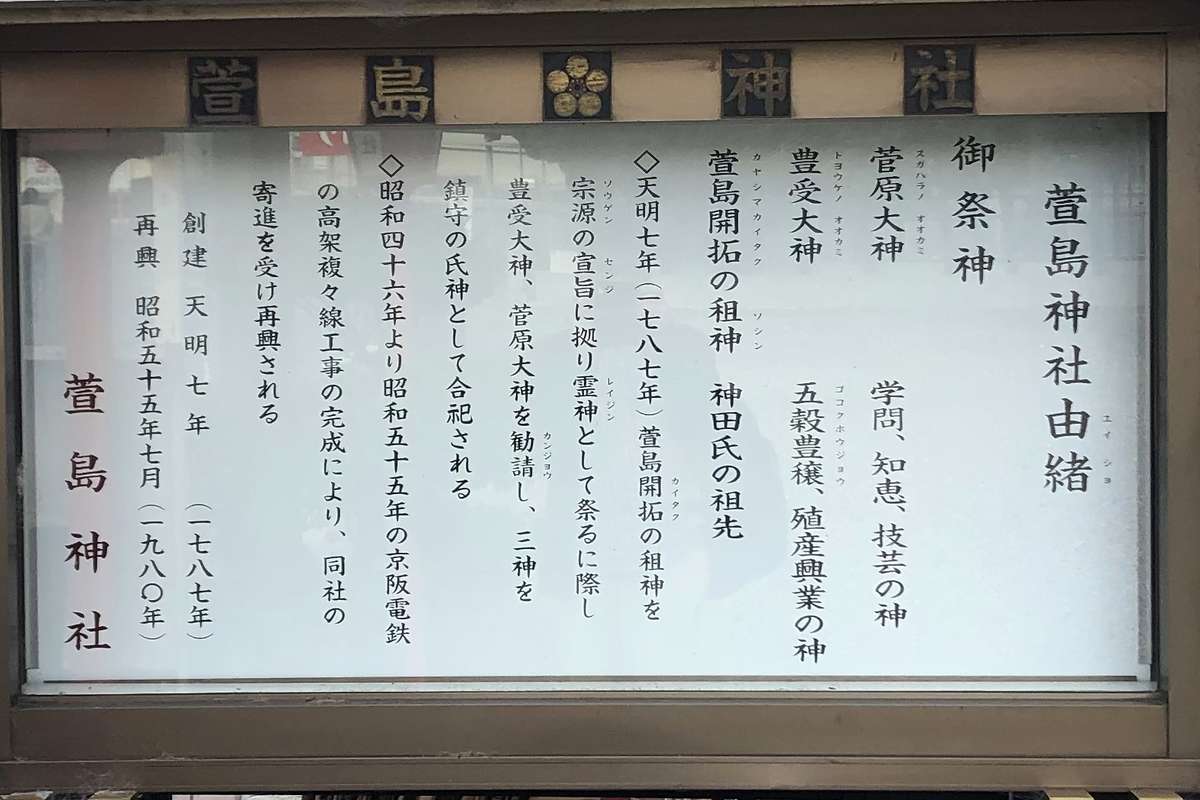 萱島神社
萱島神社由緒
ユイショ
御祭神
菅原大神 学問、知恵、技芸の神
スガハラノ オオカミ
豊受大神 五穀豊穣、殖産興業の神
トヨウケノ オオカミ ゴコクホウジョウ
萱島開拓の祖神 神田氏の祖先
カヤシマカイタク ソシン
◇天明七年(一七八七年)萱島開拓の祖神を
カイタク
宗源の宣旨に拠り霊神として祭るに際し
ソウゲン センジ レイジン
豊受大神、菅原大神を勧請し、三神を
カンジョウ
鎮守の氏神として合祀される
◇昭和四十六年より昭和五十五年の京阪電鉄
の高架複々線工事の完成により、同社の
寄進を受け再興される
創建 天明七年 (一七八七年)
再興 昭和五十五年七月(一九八〇年)
萱島神社